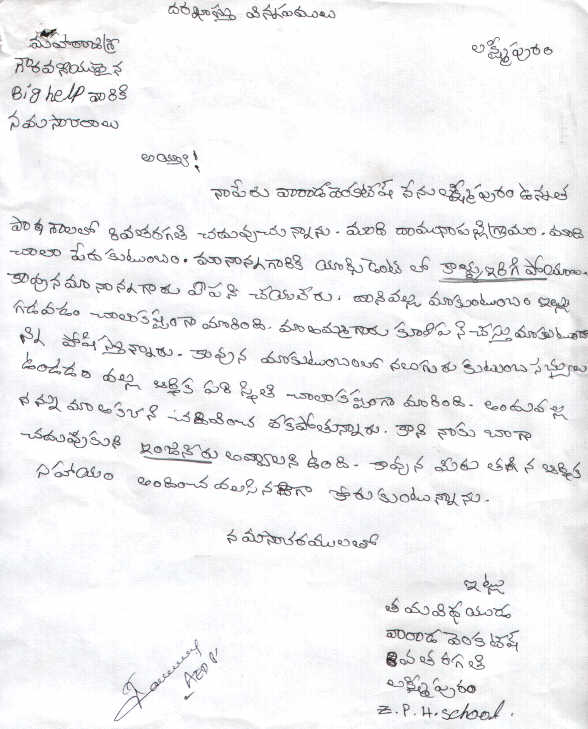 దరఖాస్తు విన్నపములు
లక్ష్మీపురం
మహారాజశ్రీ
గౌరవనీయులైన
Big help వారికి
నమస్కారాలు
అయ్యా!
నాపేరు వారాడ వెంకటేష్ నేను లక్ష్మీపురం ఉన్నత
పాఠశాలలో 8వతరగతి చదువుచున్నాను. మాది రామునాపల్లి గ్రామం. మాది
చాలా పేదకుటుంబం. మా నాన్నగారికి యాక్సిడెంట్ లో కాళ్ళు ఇరిగి పోయాయి.
కావున మా నాన్నగారు ఏపని చేయలేరు. దానివల్ల మాకుటుంబం ఇల్లు
గడవడం చాలాకష్టంగా మారింది. మా అమ్మగారు కూలిపని చేస్తు మాకుటుంబా
న్ని పోషిస్తున్నారు. కావున మాకుటుంబంలో నలుగురు కుటుంబసభ్యులు
ఉండడం వల్ల ఆర్థిక పరిస్థితి చాలాకష్టంగా మారింది. అందువల్ల
నన్ను మా చదివించ లేకపోతున్నారు. కాని నాకు బాగా
చదువుకుని ఇంజనీరు అవ్వాలని ఉంది. కావున మీరు తగిన ఆర్థిక
సహాయం అందించవలసినదిగా కోరుకుంటున్నాను.
నమస్కారములతో
ఇట్లు
తమవిధేయుడు
వారాడ వెంకటేష్
8వ తరగతి
లక్ష్మీపురం
Z.P.H. school.